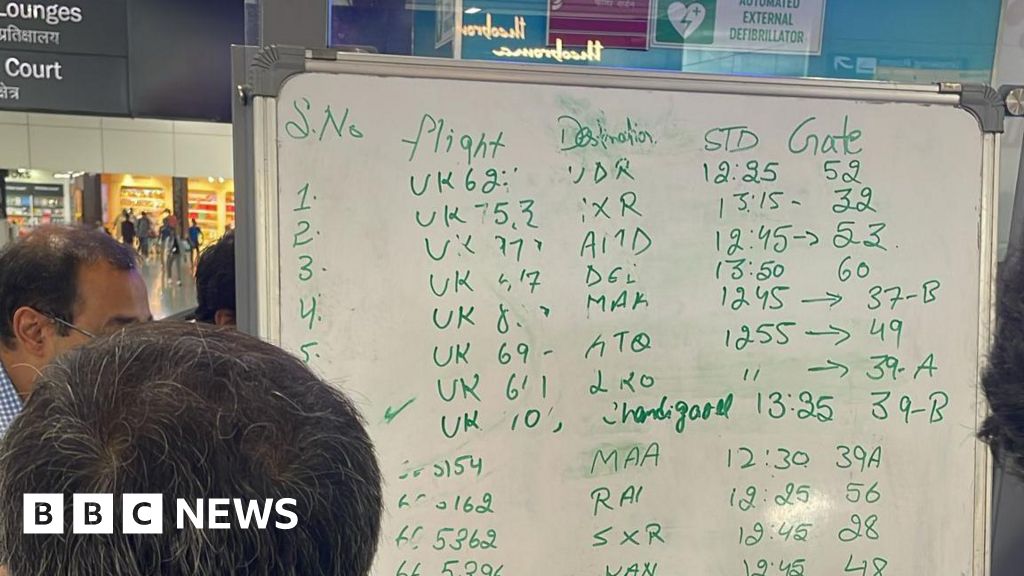 Lounges
प्रतिक्षालय
Court
क्षेत्र
theobroma
theobroma
AUTOMATED
EXTERNAL
DEFIBRILLATOR
S.No flight Destination STD Gate
UK 62 UDR 12:25 52
1. UK 753 IXR 13:15- 32
2. UK AMD 12:45 → 53
3. UK DEL 13:50 60
4. UK MAA 1245 → 37-B
5. UK 69 ATQ 1255 → 49
UK 611 LKO " → 39-A
✓ UK Chandigarh 13:25 39-B
5154 MAA 12:30 39A
5162 RAI 12:25 56
6E 5362 SXR 12:45 28
6E 5396 12:45 48
BBC NEWS